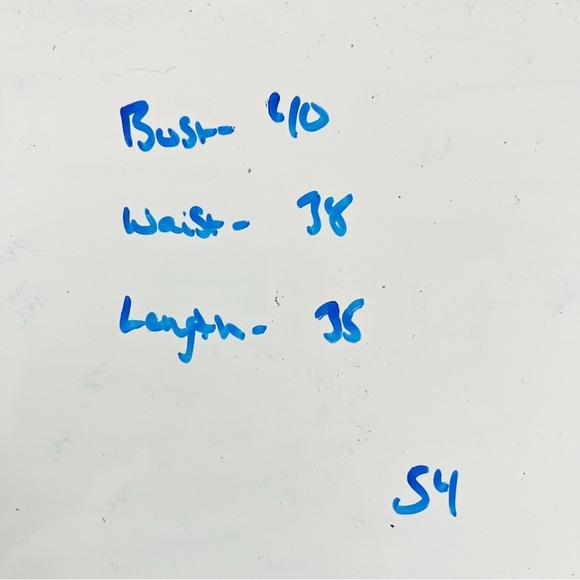 Bust- 40
Waist- 38
Length- 35
54